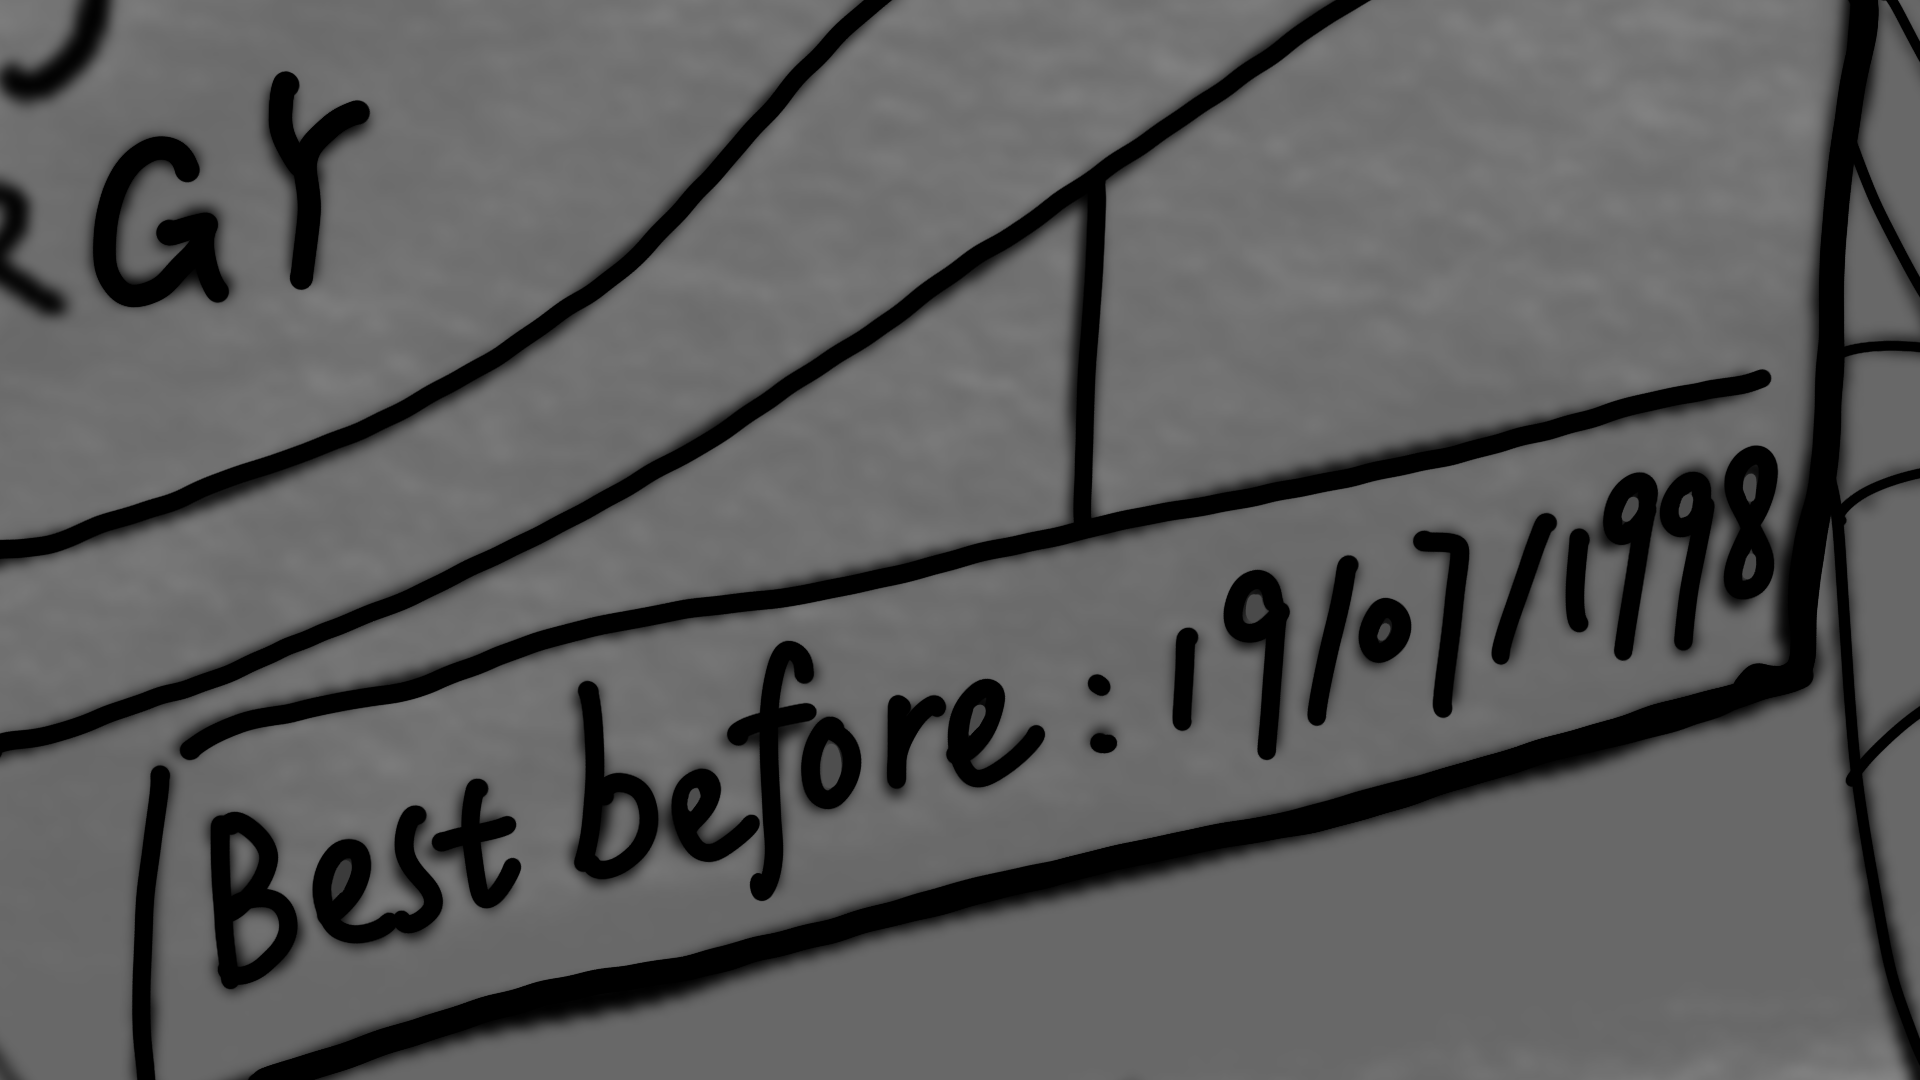 RGY
Best before: 19/07/1998